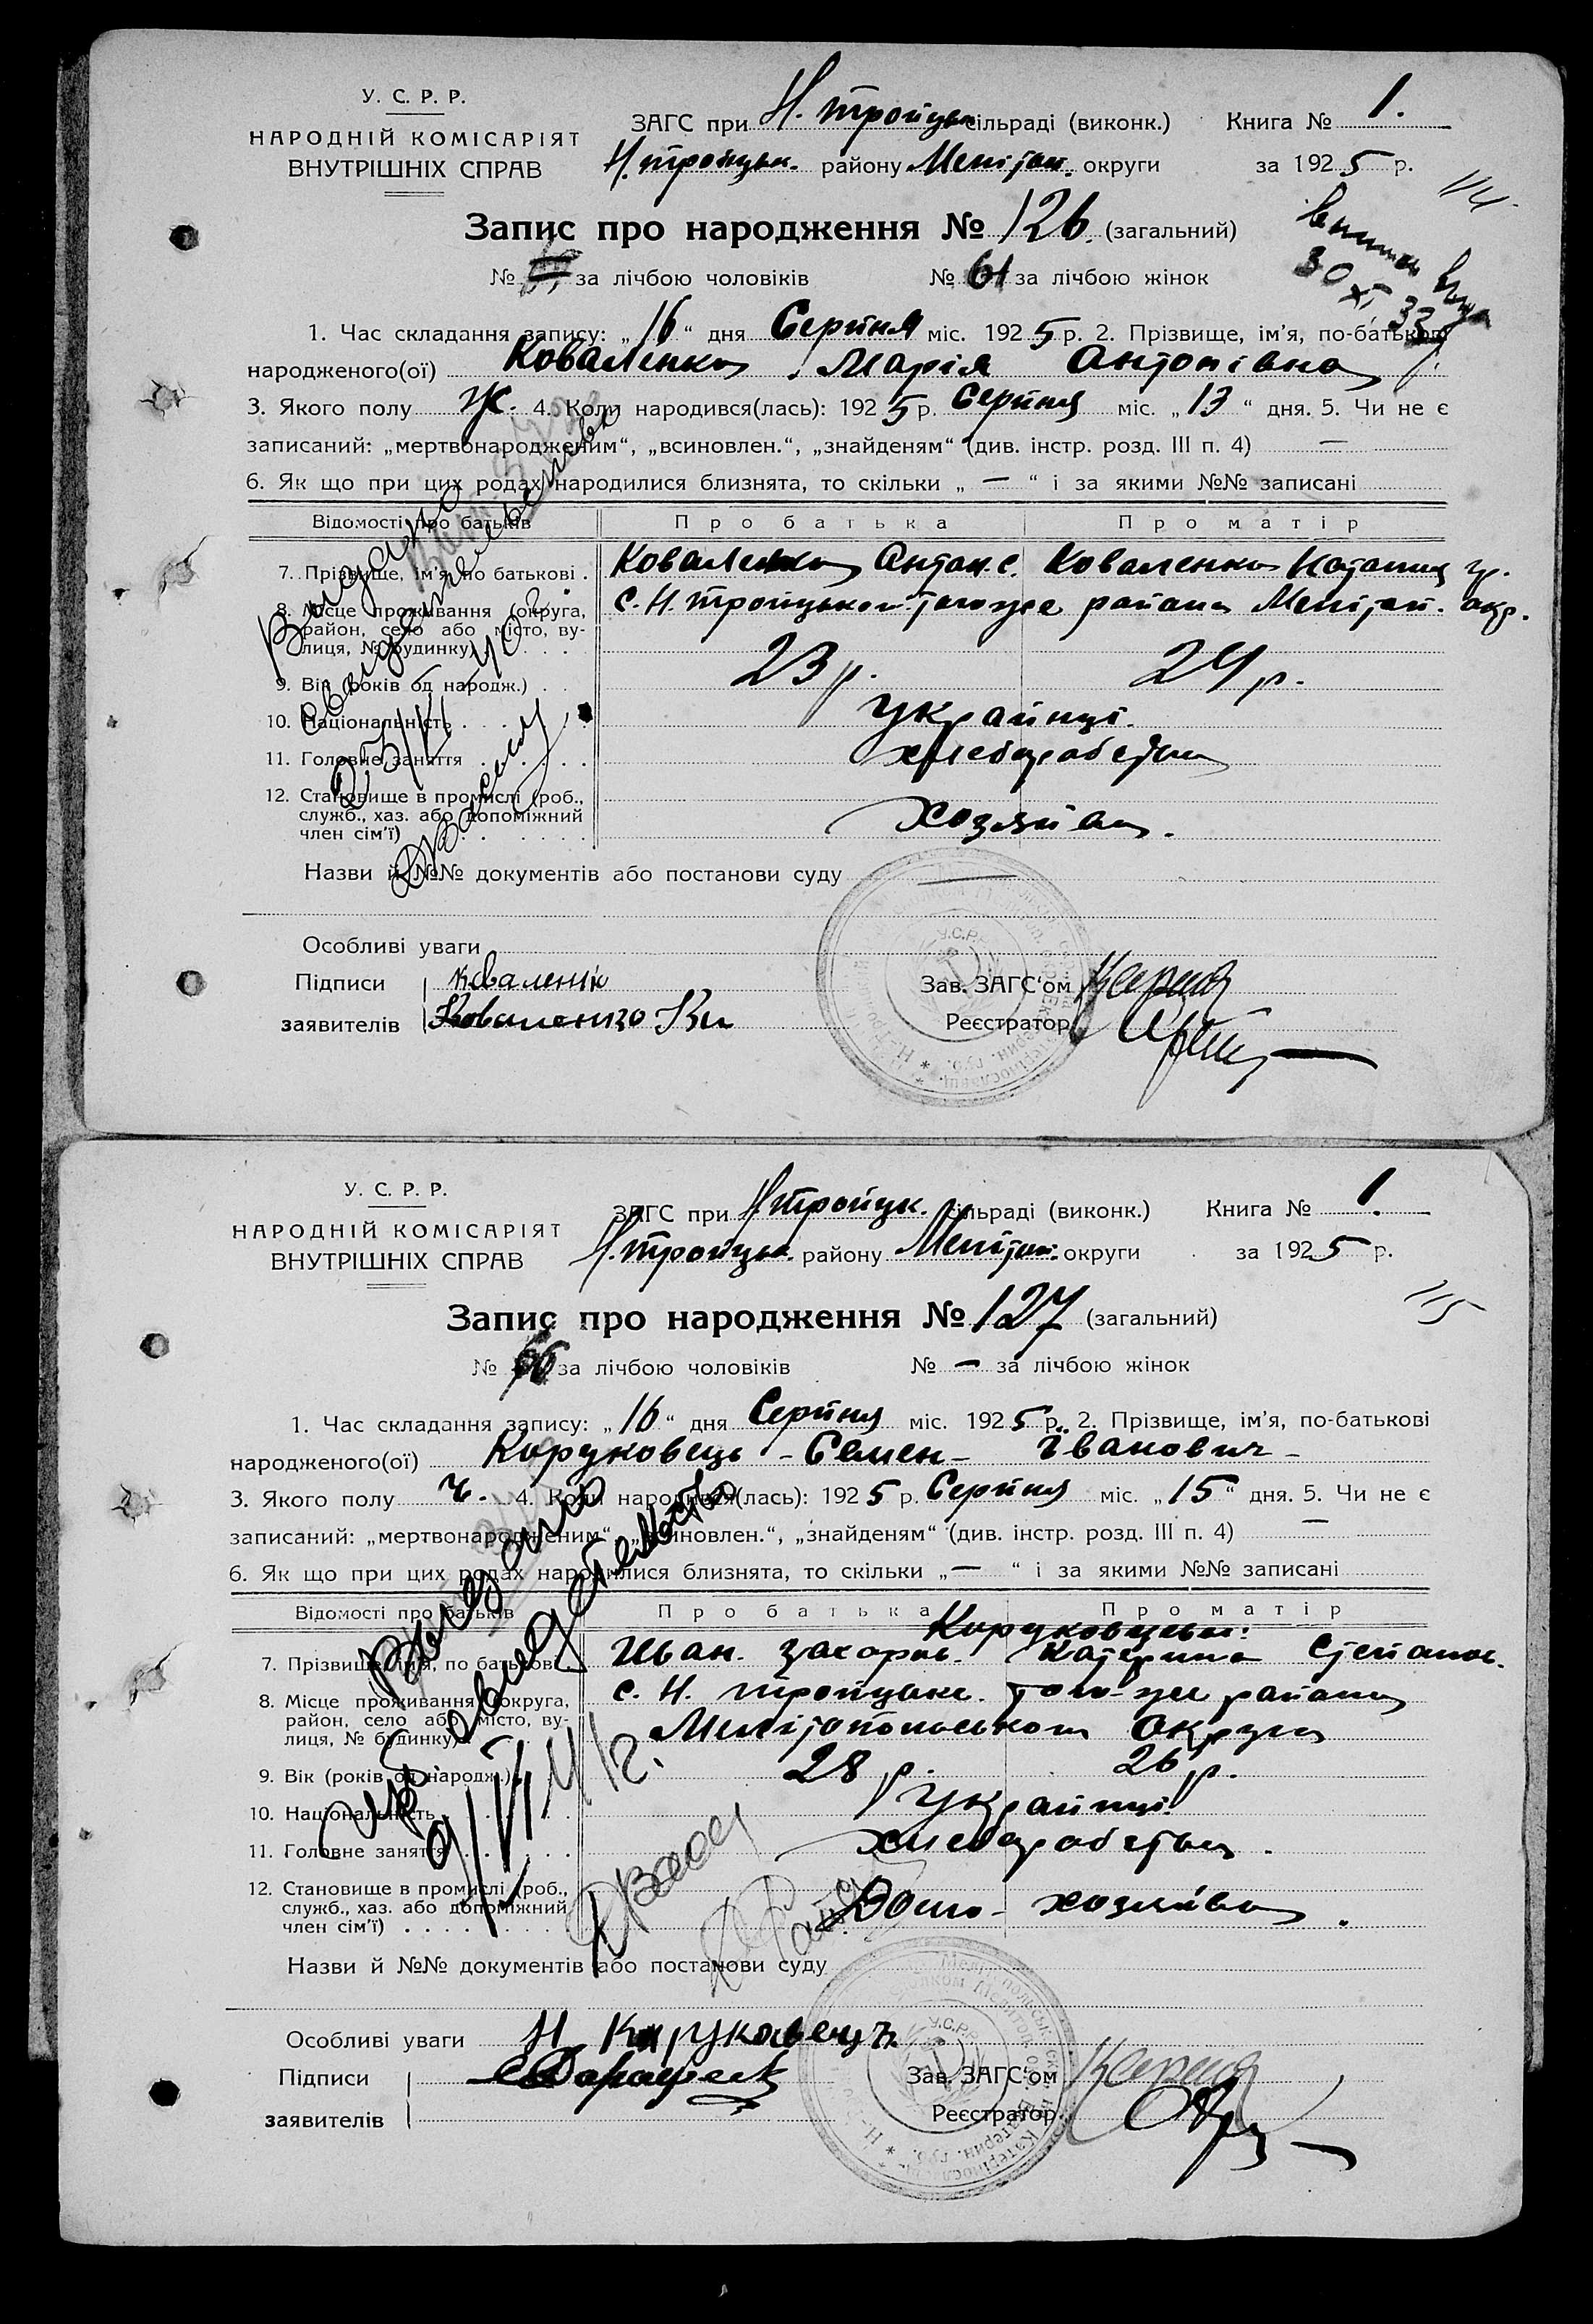 У. С. Р. Р.
НАРОДНІЙ КОМІСАРІЯТ
ВНУТРІШНІХ СПРАВ
ЗАГС при Н. Тройцьк сільраді (виконк.) Книга № 1.
Н. Тройцьк. району Меліт. округи за 1925 р.
114
Запис про народження № 126. (загальний)
№ за лічбою чоловіків № 61 за лічбою жінок
30 XI 33
1. Час складання запису: „16“ дня Серпня міс. 1925 р. 2. Прізвище, ім'я, по-батькові
народженого(ої) Коваленко Марія Антонівна
3. Якого полу Ж. 4. Коли народився(лась): 1925 р. Серпня міс. „13“ дня. 5. Чи не є
записаний: „мертвонародженим“, „всиновлен.“, „знайденям“ (див. інстр. розд. III п. 4) —
6. Як що при цих родах народилися близнята, то скільки „ — “ і за якими №№ записані
Відомості про батьків Про батька Про матір
7. Прізвище, ім'я, по батькові . Коваленко Антон. С. Коваленко Наталия гр.
8. Місце проживання (округа, район, село або місто, вулиця, № будинку) с. Н. Тройцьког. того же района Меліт. окр.
9. Вік (років од народж.) . . 23 р. 24 р.
10. Національність . . . . Українці.
11. Головне заняття . . . . . хлеборобство
12. Становище в промислі (роб.,
служб., хаз. або допоміжний
член сім'ї) . . . . . . . Хозяйва.
Выдано
свидетельство
25/
Назви й №№ документів або постанови суду —
Особливі уваги
Підписи Коваленко Зав. ЗАГС'ом
заявителів Коваленко Реєстратор
У.С.Р.Р.
У. С. Р. Р.
НАРОДНІЙ КОМІСАРІЯТ
ВНУТРІШНІХ СПРАВ
ЗАГС при Н. Тройцьк. сільраді (виконк.) Книга № 1.
Н. Тройцьк. району Меліт. округи за 1925 р.
115
Запис про народження № 127 (загальний)
№ 66 за лічбою чоловіків № — за лічбою жінок
1. Час складання запису: „16“ дня Серпня міс. 1925 р. 2. Прізвище, ім'я, по-батькові
народженого(ої) Коруковець - Семен - Іванович -
3. Якого полу ч. 4. Коли народився(лась): 1925 р. Серпня міс. „15“ дня. 5. Чи не є
записаний: „мертвонародженим“, „всиновлен.“, „знайденям“ (див. інстр. розд. III п. 4) —
6. Як що при цих родах народилися близнята, то скільки „ — “ і за якими №№ записані
Відомості про батьків Про батька Про матір
7. Прізвище, ім'я, по батькові . Иван. Захаров. Катерина Степанов.
8. Місце проживання (округа, с. Н. Тройцьке. того-же района
район, село або місто, ву-
лиця, № будинку) Мелітопольскои Округи
9. Вік (років од народж.) . . 28 р. 26 р.
10. Національність . . . . Українці
11. Головне заняття . . . . . хлеборобство.
12. Становище в промислі (роб.,
служб., хаз. або допоміжний
член сім'ї) . . . . . . . хозяйва.
Выдано
свидетельство
9/VI 41 г.
Назви й №№ документів або постанови суду
Особливі уваги И Каруковецъ
Підписи Зав. ЗАГС'ом
заявителів Реєстратор
У.С.Р.Р.